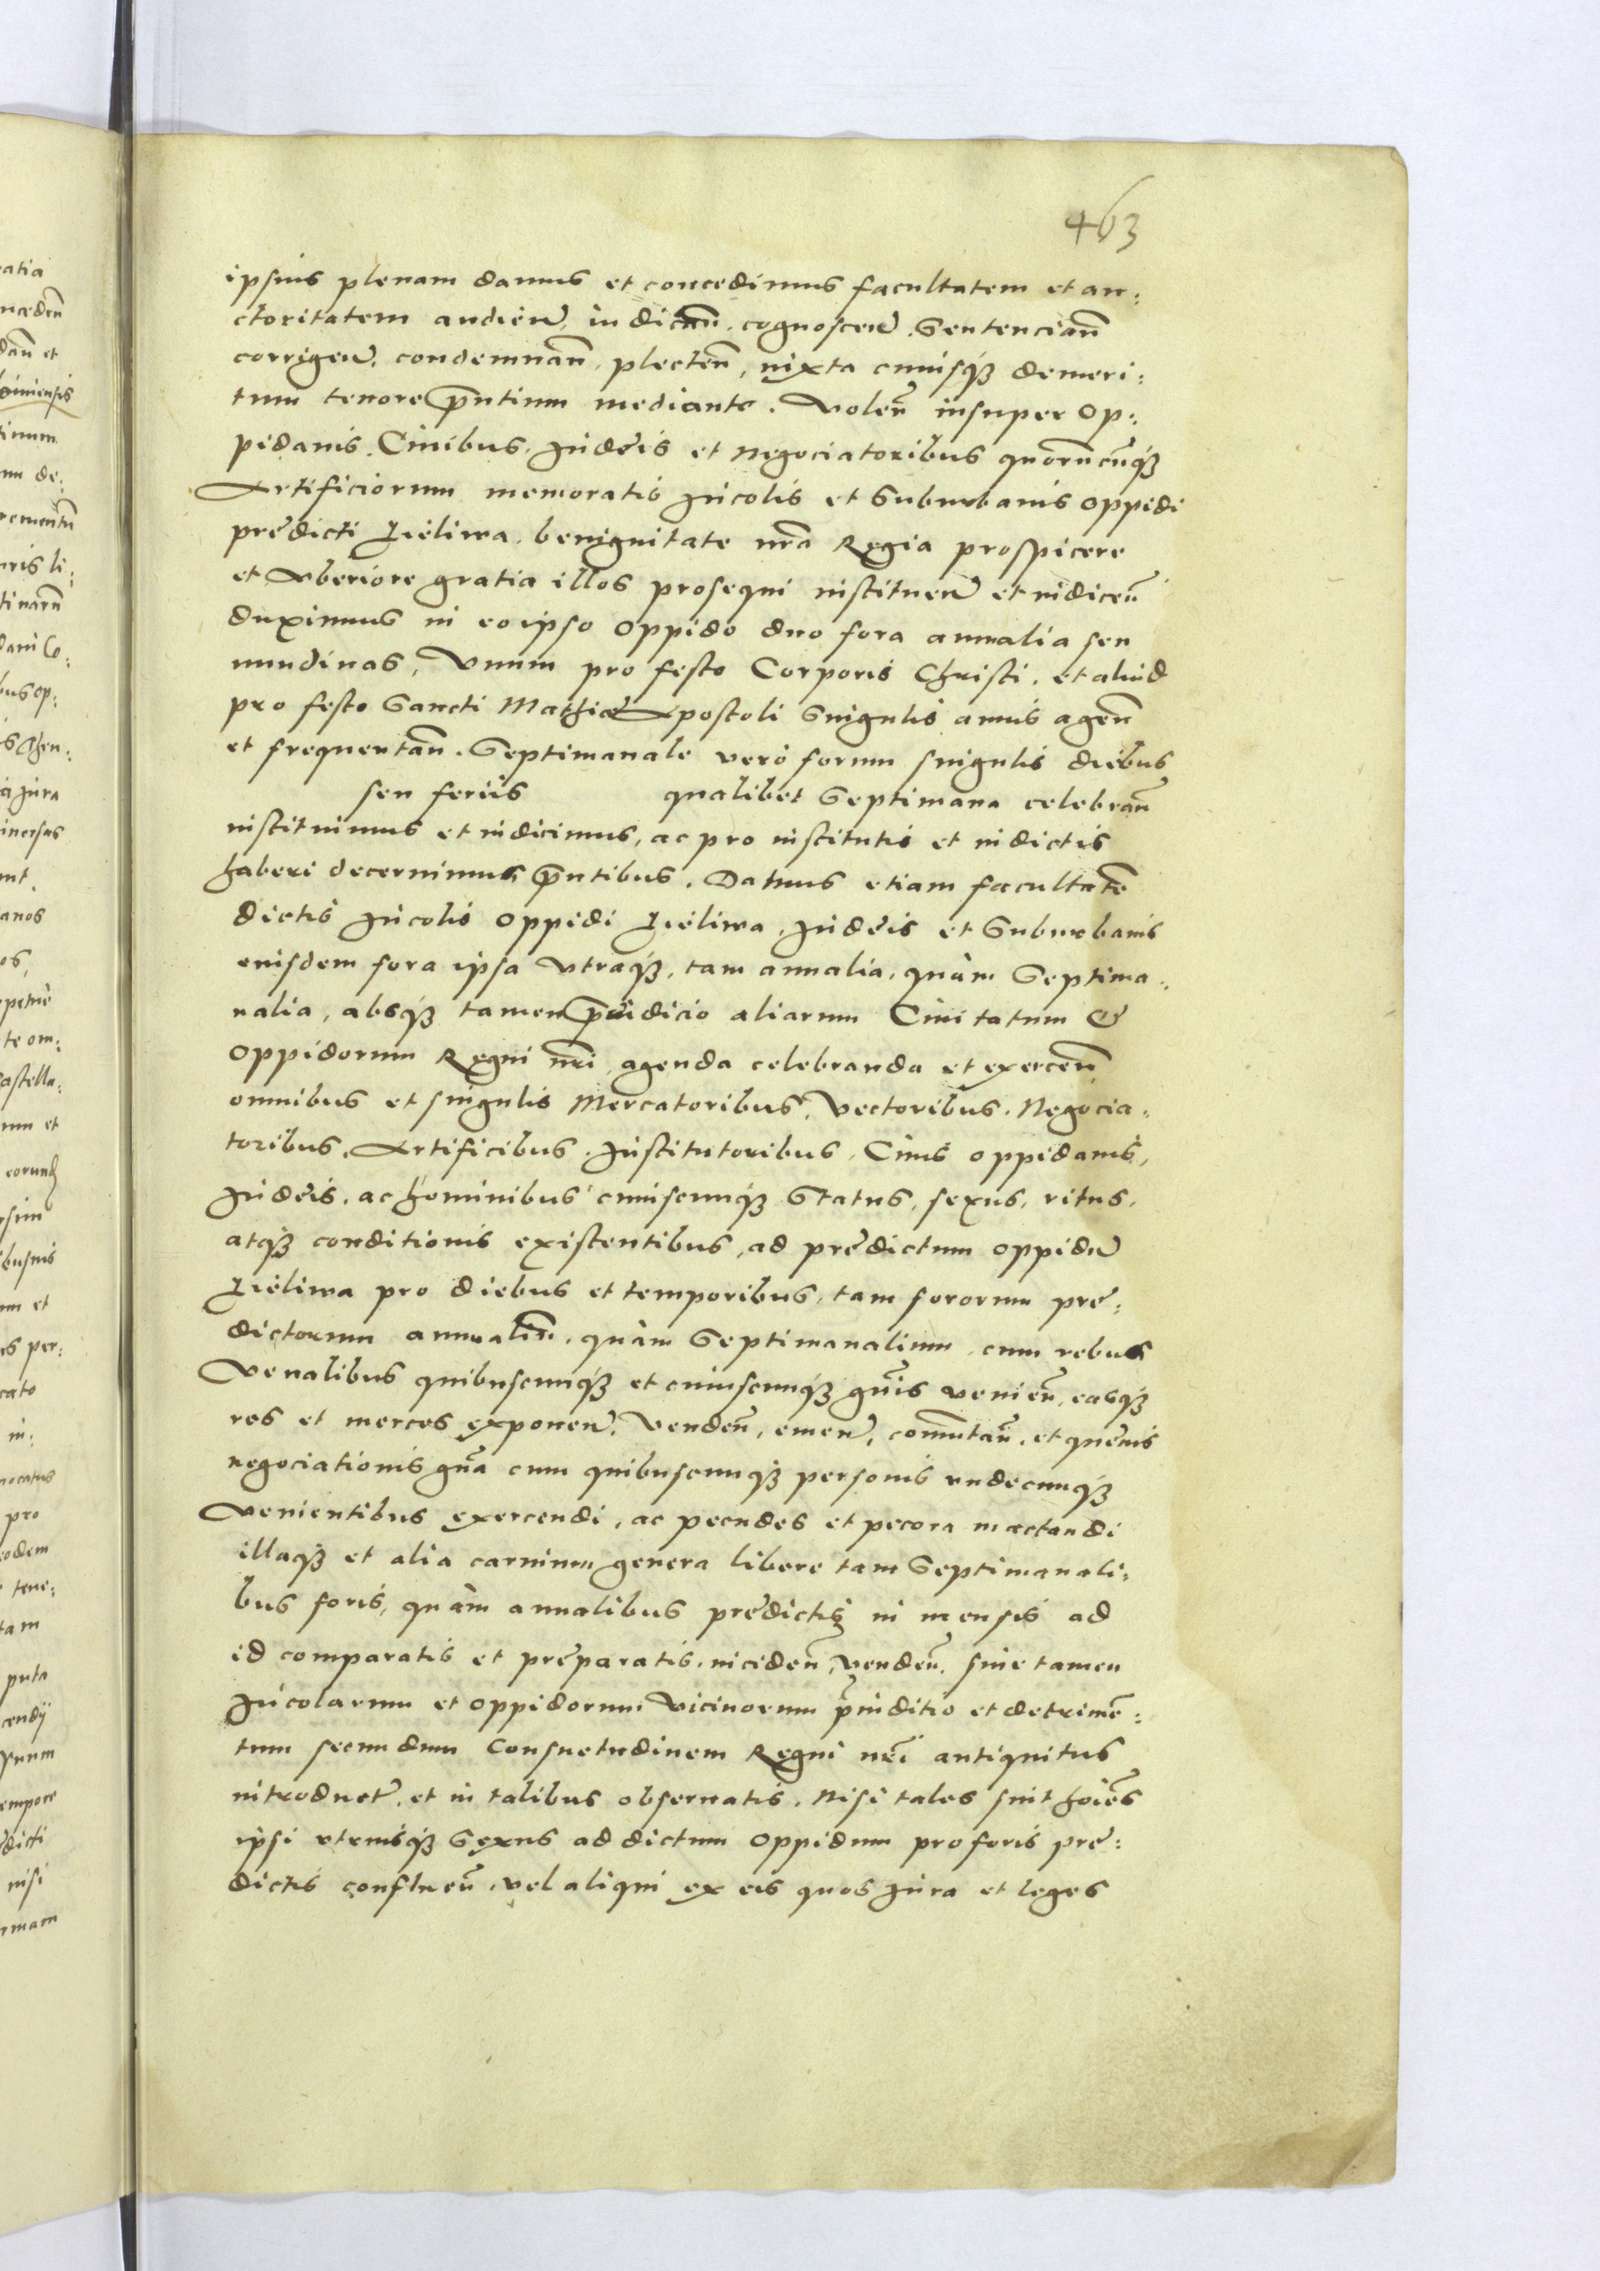 463
ipsius plenam damus et concedimus facultatem et au:
ctoritatem audien̄, iudican̄, cognoscen̄, Sentencian̄
corrigen̄, condemnan̄, plecten̄, iuxta cuiusq̃ demeri:
tum tenore p̃ntium mediante. Volen̄ insuper Op:
pidanis, Ciuibus, Iudeis et Negociatoribus quorũcũq̃
Artificiorum memoratis Incolis et Suburbanis Oppidi
predicti Kieliwa, benignitate nr̃a Regia prospicere
et Vberiore gratia illos prosequi instituen̄ et indicen̄
duximus in eo ipso Oppido duo fora annalia seu
nundinas, Vnum pro festo Corporis Christi, et aliud
pro festo Sancti Mathiæ Apostoli Singulis annis agen̄
et frequentan̄. Septimanale vero forum singulis diebus
seu feriis qualibet Septimana celebran̄
instituimus et indicimus, ac pro institutis et indictis
haberi decernimus p̃ntibus. Damus etiam facultatẽ
dictis Incolis Oppidi Kieliwa, Iudeis et Suburbanis
eiusdem fora ipsa Vtraq̃, tam annalia, quàm Septima:
nalia, absq̃ tamen p̃iudicio aliarum Ciuitatum &
Oppidorum Regni nr̃i, agenda celebranda et exercen̄
omnibus et singulis Mercatoribus, Vectoribus, Negocia:
toribus, Artificibus, Institutoribus, Ciuis oppidanis,
Iudeis, ac hominibus cuiuscunq̃ Status, sexus, ritus,
atq̃ conditionis existentibus, ad predictum oppidũ
Kieliwa pro diebus et temporibus, tam fororum pre:
dictorum annaliũ, quàm Septimanalium, cum rebus
Venalibus quibuscunq̃ et cuiuscunq̃ gñis venien̄, easq̃
res et merces exponen̄, Venden̄, emen̄, com̃utan̄, et queuis
negociationis gñа cum quibuscunq̃ personis vndecunq̃
Venientibus exercendi, ac pecudes et pecora mactandi
illaq̃ et alia carnium genera libere tam Septimanali:
bus foris, quàm annalibus predictis in mensis ad
id comparatis et preparatis, inciden̄, venden̄, sine tamen
Incolarum et Oppidorum Vicinorum p̃iuditio et detrimẽ:
tum secundum Consuetudinem Regni nr̃i antiquitus
introduct̃, et in talibus obseruatis. Nisi tales sint hoĩes
ipsi vtriusq̃ Sexus ad dictum Oppidum pro foris pre:
dictis confluen̄, vel aliqui ex eis quos Iura et leges